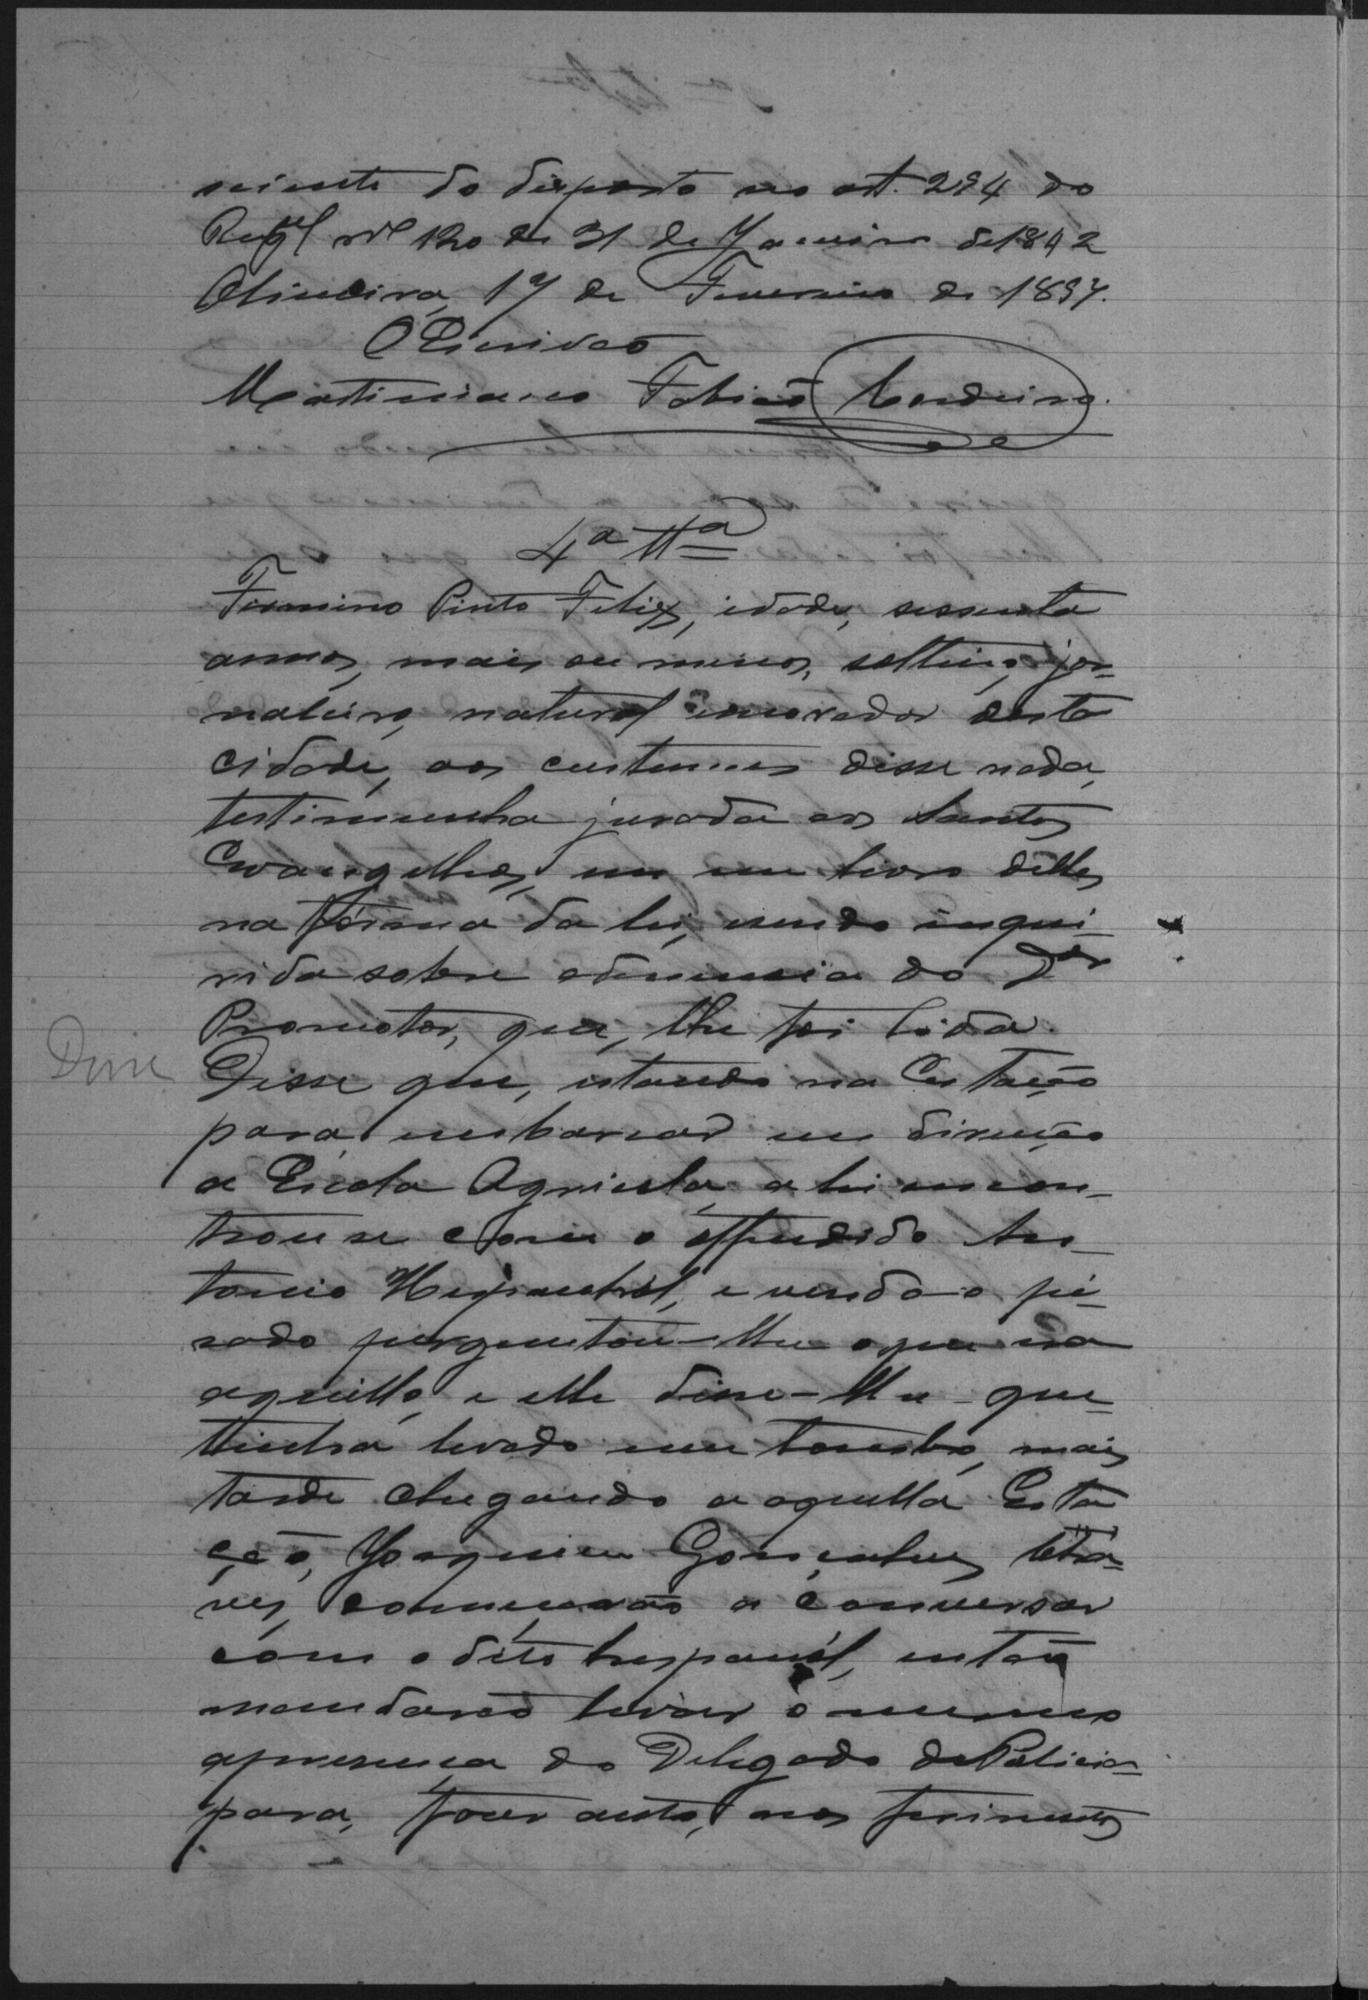 sciente do disposto no art. 294 do
Regl nº 120 de 31 de Janeiro de 1842
Oliveira, 17 de Fevereiro de 1897.
O Escrivão
Martiniano Tobias Cordeiro.
4ª Ttª
Firmino Pinto Felix, idade, sessenta
annos, mais ou menos, solteiro, jor-
naleiro, natural e morador desta
cidade, aos custumes disse nada,
testimunha jurada aos Santos
Evangelhos, em um livro delles
na fórma da lei, sendo inqui-
rida sobre a denuncia do Dor
Promotor, que, lhe foi lida.
Disse
Disse que, estando na Estação
para embarcar em direcção
a Escola Agricola, ahi encon-
trou se com o offendido An-
tonio Hespanhól, e vendo o fe-
rado perguntou-lhe o que era
aquillo, e elle disse-lhe que
tinha levado um tombo, mais
tarde chegando a aquella Esta
ção, Joaquim Gonçalves Cha-
ves, começarão a conversar
com o dito hespanhol, então
mandarão levar o mesmo
a presença do Delegado de Policia
para, fazer auto, nos ferimentos